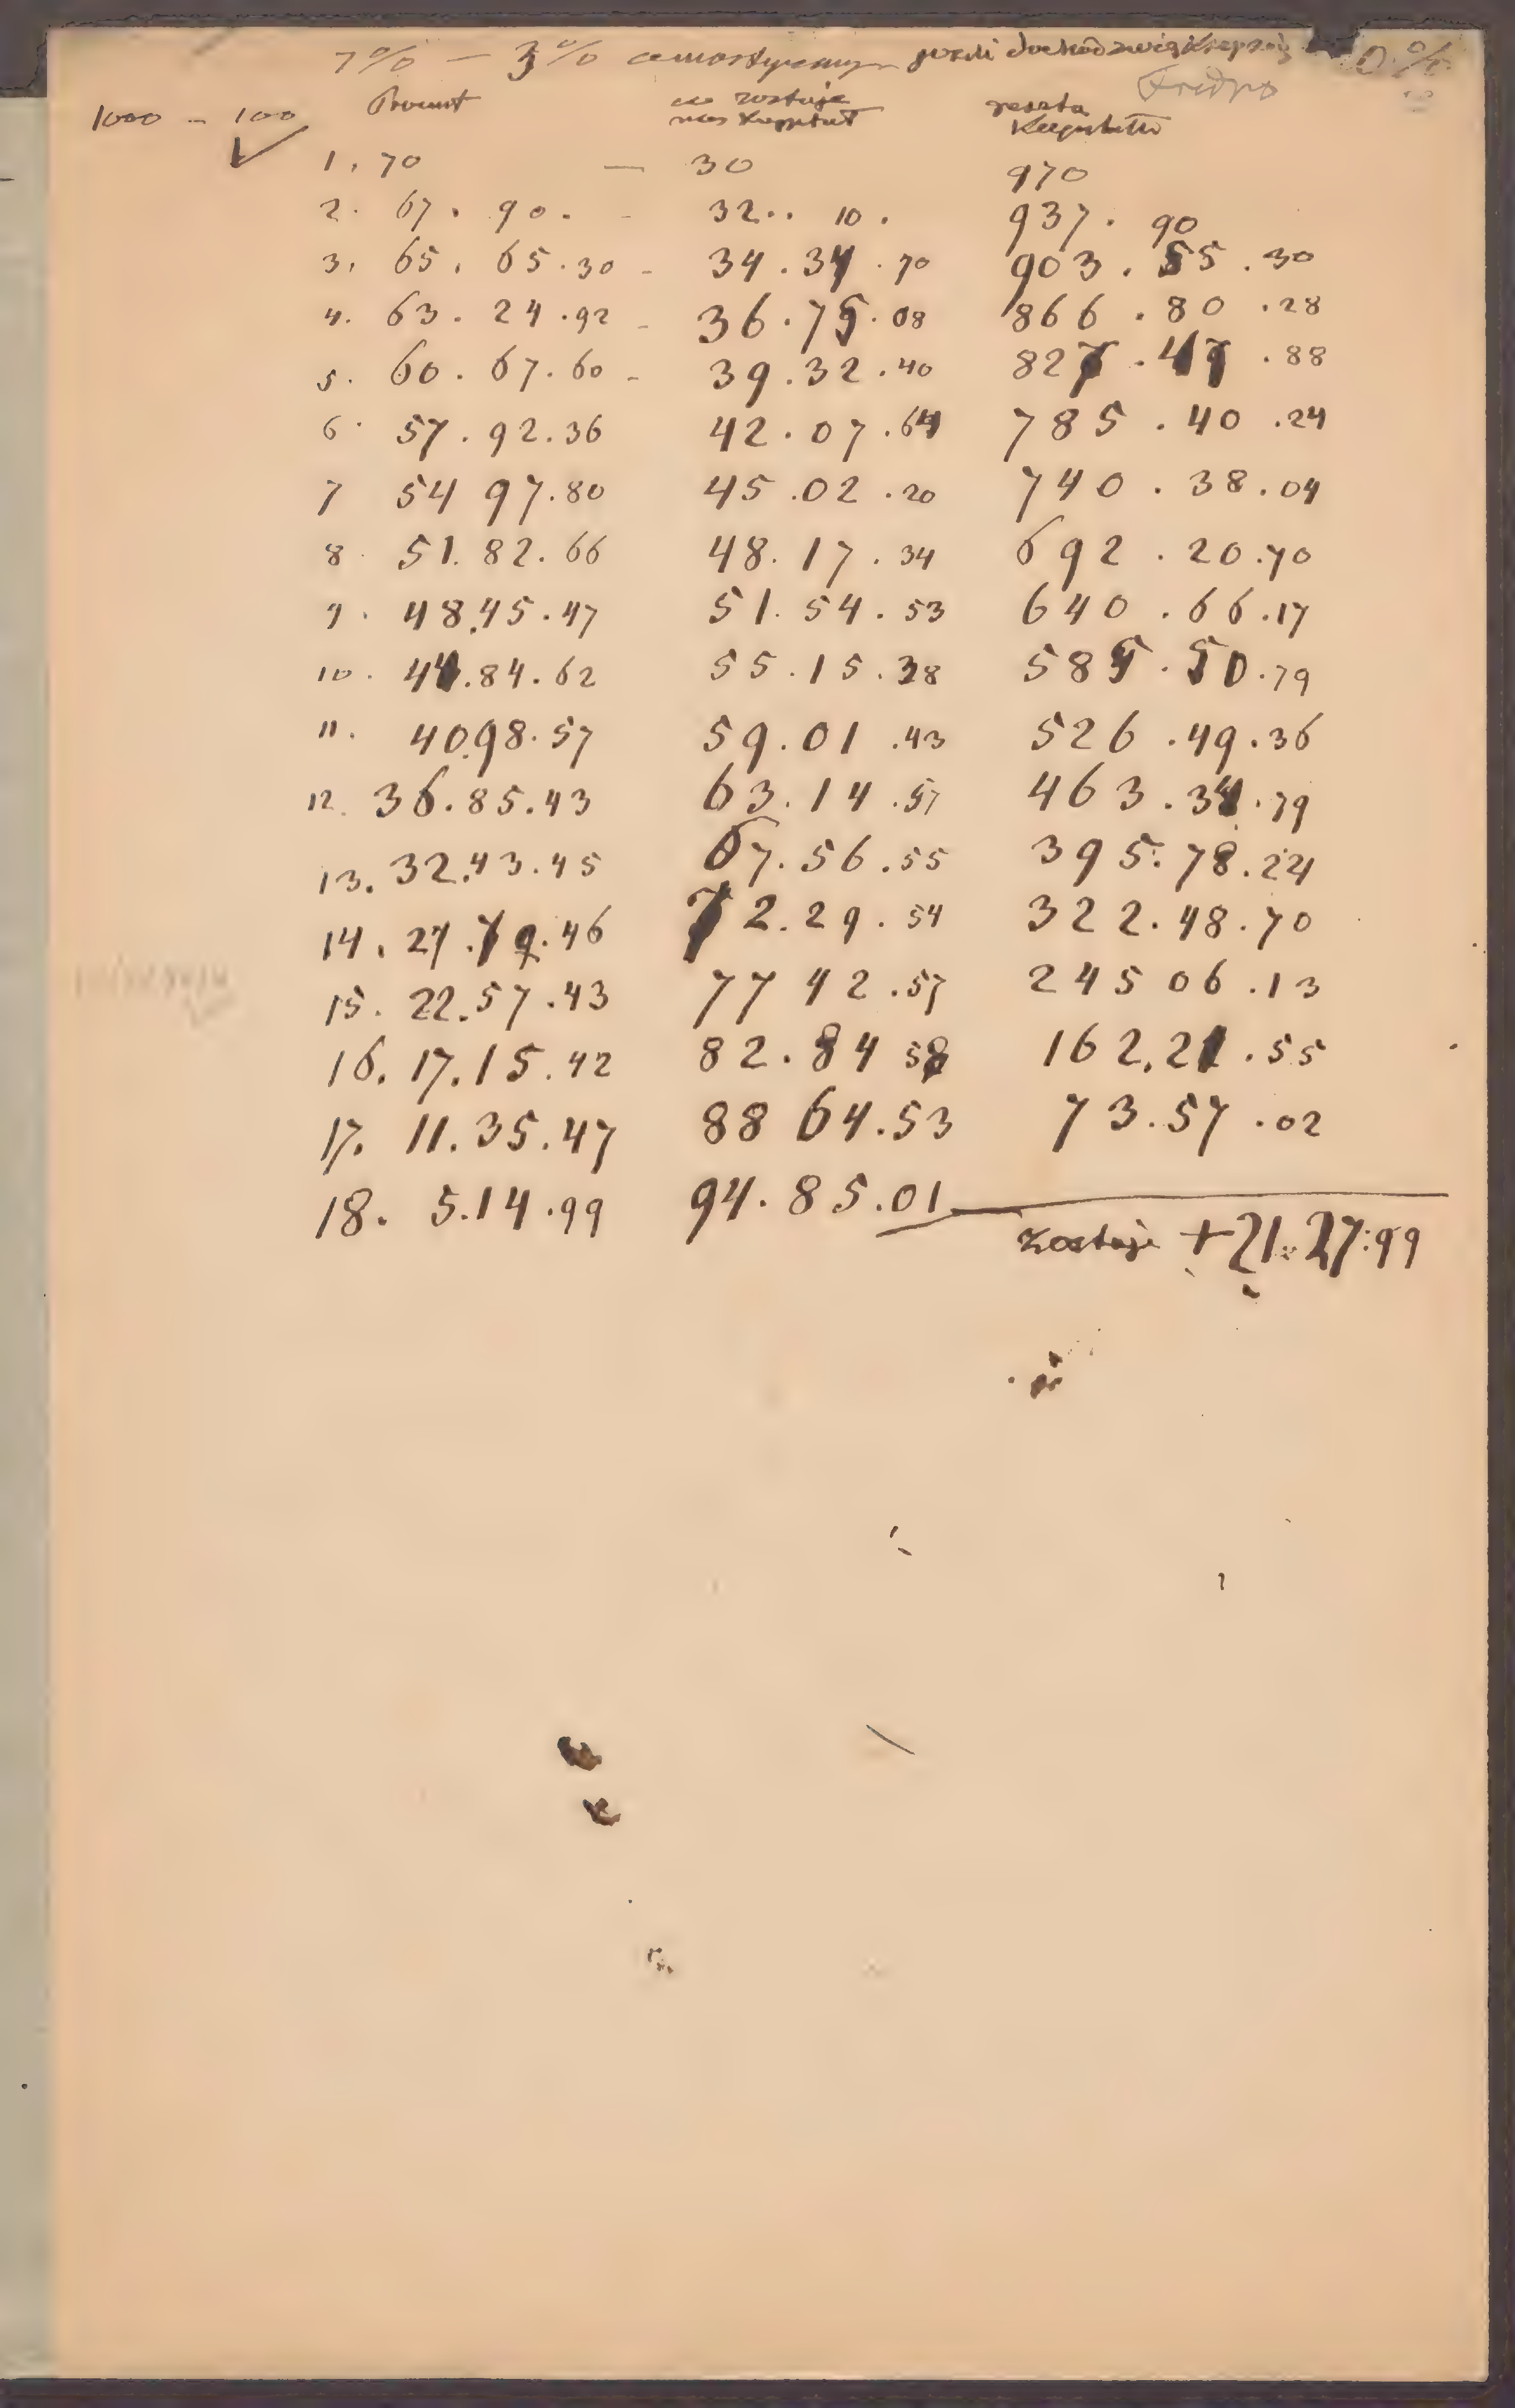 7% — 3% amortyzacyi jeżeli dochód zwiększy się 0%
Fredro
1000 - 100 Procent co zostaje na Kapitał reszta Kapitału
1. 70 — 30 970
2. 67. 90. - 32.. 10. 937. 90
3. 65. 65.30 - 34.34.70 903.55.30
4. 63.24.92 - 36.75.08 866.80.28
5. 60.67.60 - 39.32.40 827.47.88
6. 57.92.36 42.07.64 785.40.24
7 54 97.80 45.02.20 740.38.04
8. 51.82.66 48.17.34 692.20.70
9. 48.45.47 51.54.53 640.66.17
10. 44.84.62 55.15.38 585.50.79
11. 40.98.57 59.01.43 526.49.36
12. 36.85.43 63.14.57 463.34.79
13. 32.43.45 67.56.55 395.78.24
14. 27.70.46 72.29.54 322.48.70
15. 22.57.43 77 42.57 245 06.13
16. 17.15.42 82.84 58 162.21.55
17. 11.35.47 88 64.53 73.57.02
18. 5.14.99 94.85.01
zostaje +21.27.99